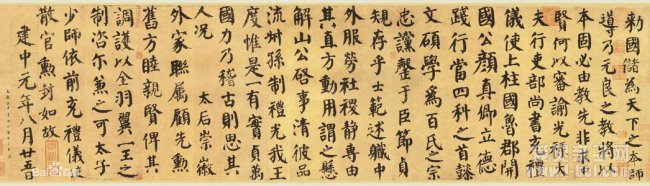 勅國儲為天下之本師
導乃元良之教將以
本固必由教先非求忠
賢何以審諭光祿大
夫行吏部尚書充禮
儀使上柱國魯郡開
國公顏真卿立德
踐行當四科之首懿
文碩學為百氏之宗
忠讜罄于臣節貞
規存乎士範述職中
外服勞社稷靜專由
其直方動用謂之懸
解山公啓事清彼品
流叔孫制禮光我王
度惟是一有實貞萬
國力乃稽古則思其
人況 太后崇徽
外家聯屬顧先勳
舊方睦親賢俾其
調護以全羽翼一王之
制咨爾兼之可太子
少師依前充禮儀使
散官勳封如故
建中元年八月廿五日
Bai百科